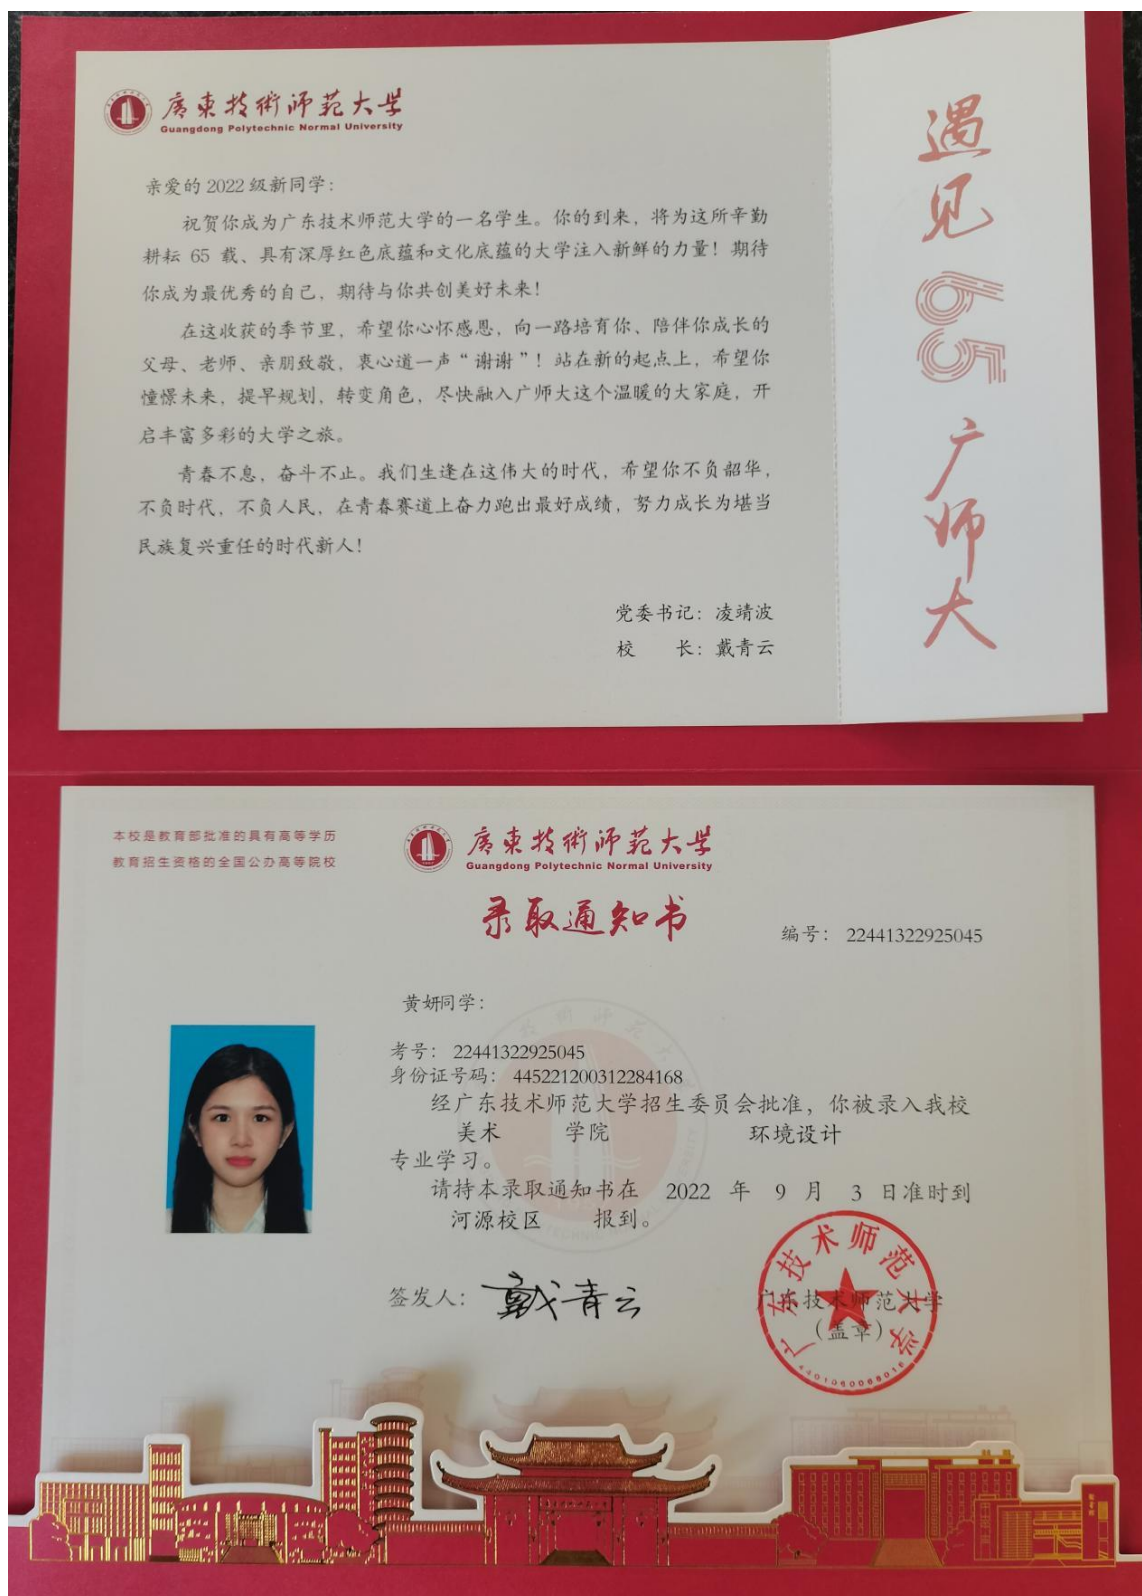 廣東技術师范大学
Guangdong Polytechnic Normal University
遇见65广师大
亲爱的 2022 级新同学：
祝贺你成为广东技术师范大学的一名学生。你的到来，将为这所辛勤
耕耘 65 载、具有深厚红色底蕴和文化底蕴的大学注入新鲜的力量！期待
你成为最优秀的自己，期待与你共创美好未来！
在这收获的季节里，希望你心怀感恩，向一路培育你、陪伴你成长的
父母、老师、亲朋致敬，衷心道一声“谢谢”！站在新的起点上，希望你
憧憬未来，提早规划，转变角色，尽快融入广师大这个温暖的大家庭，开
启丰富多彩的大学之旅。
青春不息，奋斗不止。我们生逢在这伟大的时代，希望你不负韶华，
不负时代，不负人民，在青春赛道上奋力跑出最好成绩，努力成长为堪当
民族复兴重任的时代新人！
党委书记：凌靖波
校 长：戴青云
本校是教育部批准的具有高等学历
教育招生资格的全国公办高等院校
廣東技術师范大学
Guangdong Polytechnic Normal University
录取通知书
编号： 22441322925045
黄妍同学：
考号： 22441322925045
身份证号码： 445221200312284168
经广东技术师范大学招生委员会批准，你被录入我校
美术 学院 环境设计
专业学习。
请持本录取通知书在 2022 年 9 月 3 日准时到
河源校区 报到。
签发人：戴青云
广东技术师范大学
（盖章）
广东技术师范大学